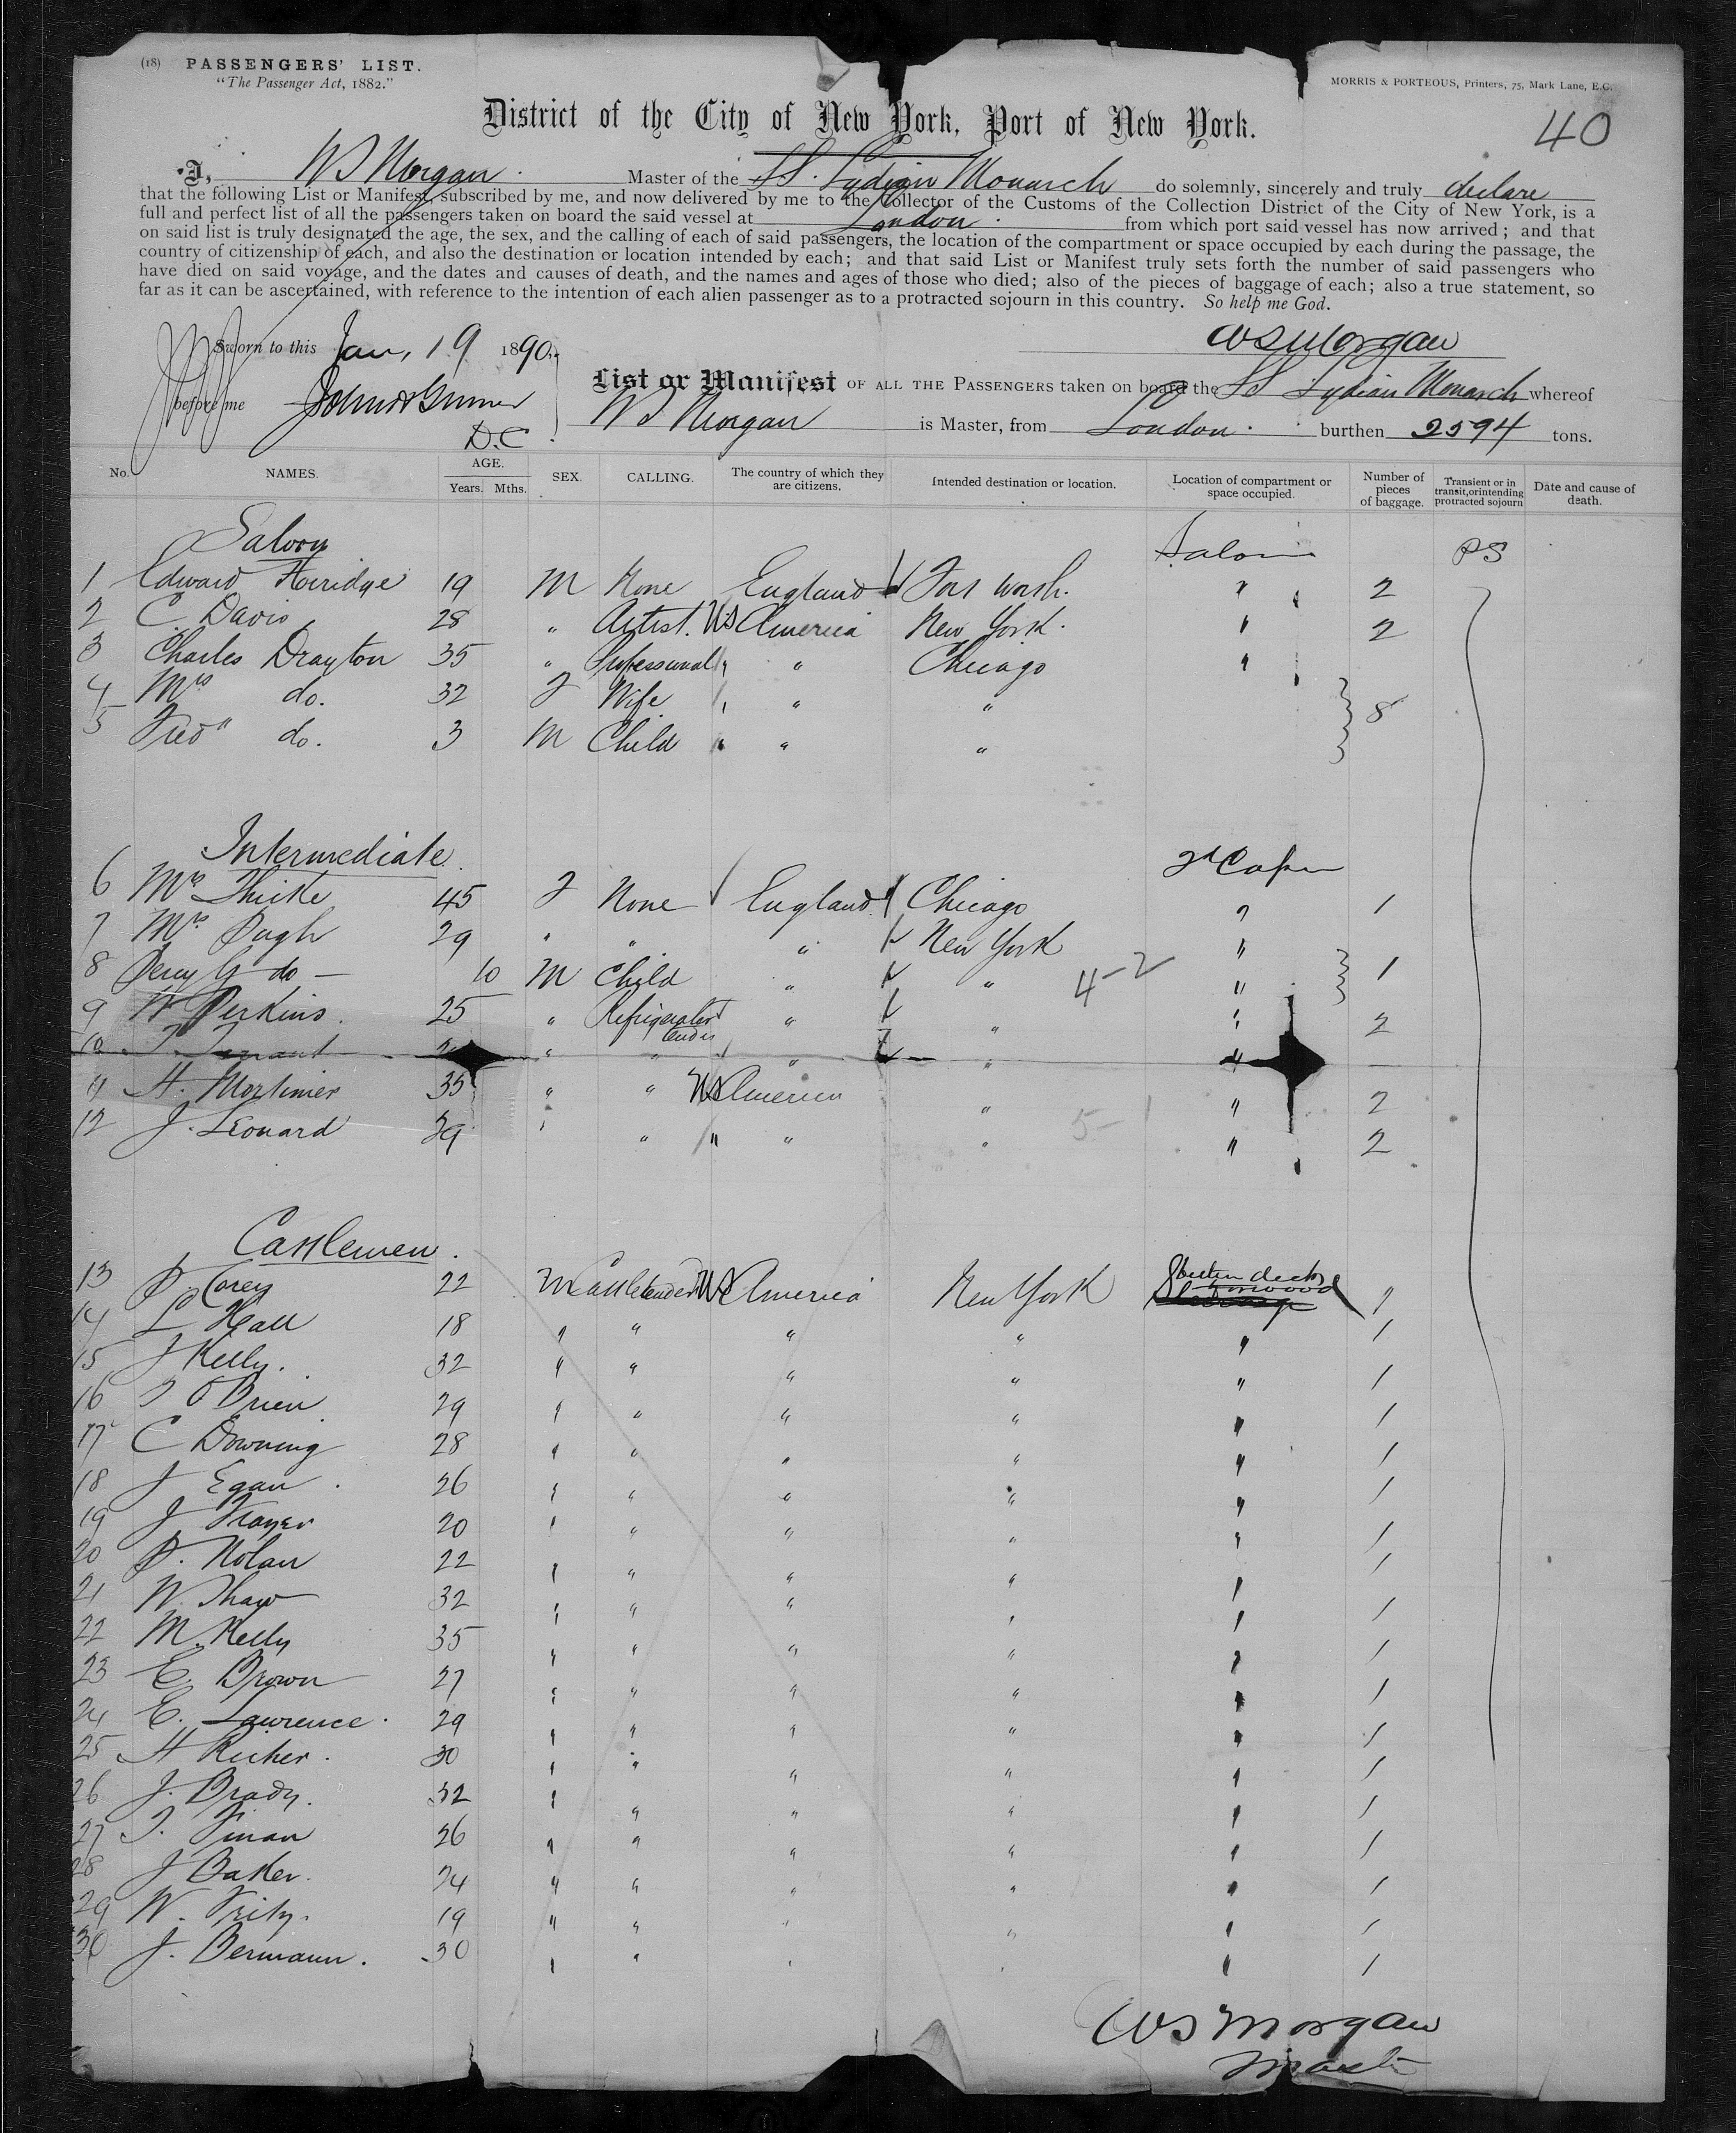 (18) PASSENGERS' LIST.
"The Passenger Act, 1882."
MORRIS & PORTEOUS, Printers, 75, Mark Lane, E.C.
District of the City of New York, Port of New York.
40
I, W S Morgan Master of the SS. Lydian Monarch do solemnly, sincerely and truly declare
that the following List or Manifest, subscribed by me, and now delivered by me to the Collector of the Customs of the Collection District of the City of New York, is a
full and perfect list of all the passengers taken on board the said vessel at London from which port said vessel has now arrived; and that
on said list is truly designated the age, the sex, and the calling of each of said passengers, the location of the compartment or space occupied by each during the passage, the
country of citizenship of each, and also the destination or location intended by each; and that said List or Manifest truly sets forth the number of said passengers who
have died on said voyage, and the dates and causes of death, and the names and ages of those who died; also of the pieces of baggage of each; also a true statement, so
far as it can be ascertained, with reference to the intention of each alien passenger as to a protracted sojourn in this country. So help me God.
W S Morgan
Sworn to this Jan, 19 1890,
before me
D.C
List or Manifest OF ALL THE PASSENGERS taken on board the SS Lydian Monarch whereof
W S Morgan is Master, from London. burthen 2594 tons.
No. NAMES. AGE. Years. Mths. SEX. CALLING. The country of which they are citizens. Intended destination or location. Location of compartment or space occupied. Number of pieces of baggage. Transient or in transit, or intending protracted sojourn Date and cause of death.
Saloon Saloon PS
1 Edward Horridge 19 M None England 2
2 C. Davis 28 " Artist. US America New York. " 2
3 Charles Drayton 35 " Professional " " Chicago "
4 Mrs do. 32 F Wife " " " 8
5 Fred " do. 3 M Child " " "
Intermediate
6 Mrs 45 F None England Chicago " 1
7 Mrs Pugh 29 " " " New York "
8 Percy G do 10 M Child " " 4-2 " 1
9 W Perkins. 25 " Refrigerator tender " " " 2
10 " " " " "
11 H. Mortimer 35 " " US America " " 2
12 J. Leonard 39 " " " " " " 2
5-1
Cattlemen.
13 P. Corey 22 M Cattletender US America New York 1
14 L Hall 18 " " " " " 1
15 J Kelly. 32 " " " " " 1
16 T O'Brien 29 " " " " " 1
17 C Downing 28 " " " " " 1
18 J Egan 26 " " " " " 1
19 J 20 " " " " " 1
20 P. Nolan 22 " " " " " 1
21 W. Shaw 32 " " " " " 1
22 M. Kelly 35 " " " " " 1
23 E. Brown 27 " " " " " 1
24 E. Lawrence. 29 " " " " " 1
25 H 30 " " " " " 1
26 J. Brady. 32 " " " " " 1
27 T. Finan 26 " " " " " 1
28 J Baker. 24 " " " " " 1
29 W. 19 " " " " " 1
30 J. Bermann. 30 " " " " " 1
W S Morgan
Master